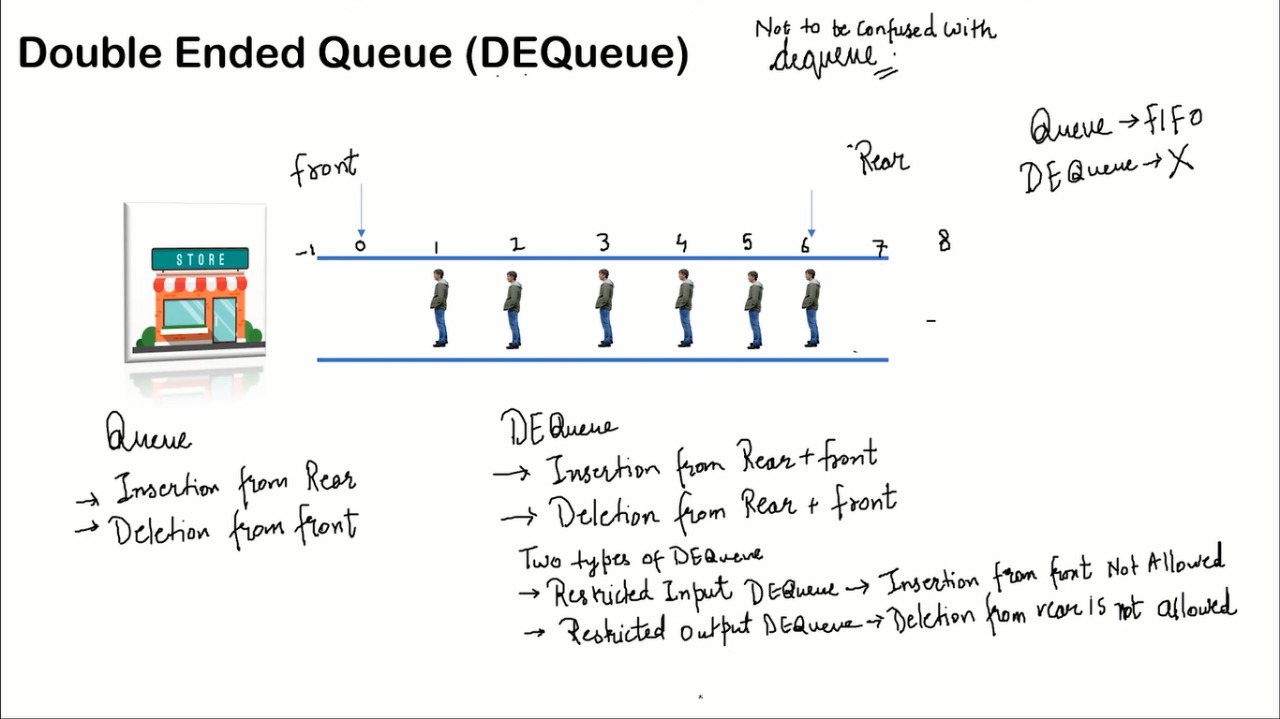 Double Ended Queue (DEQueue)
Not to be confused with
dequeue
Queue → FIFO
DEQueue → X
front
Rear
-1 0 1 2 3 4 5 6 7 8
STORE
Queue
→ Insertion from Rear
→ Deletion from front
DEQueue
→ Insertion from Rear + front
→ Deletion from Rear + front
Two types of DEQueue
→ Restricted Input DEQueue → Insertion from front Not Allowed
→ Restricted Output DEQueue → Deletion from rear is not allowed